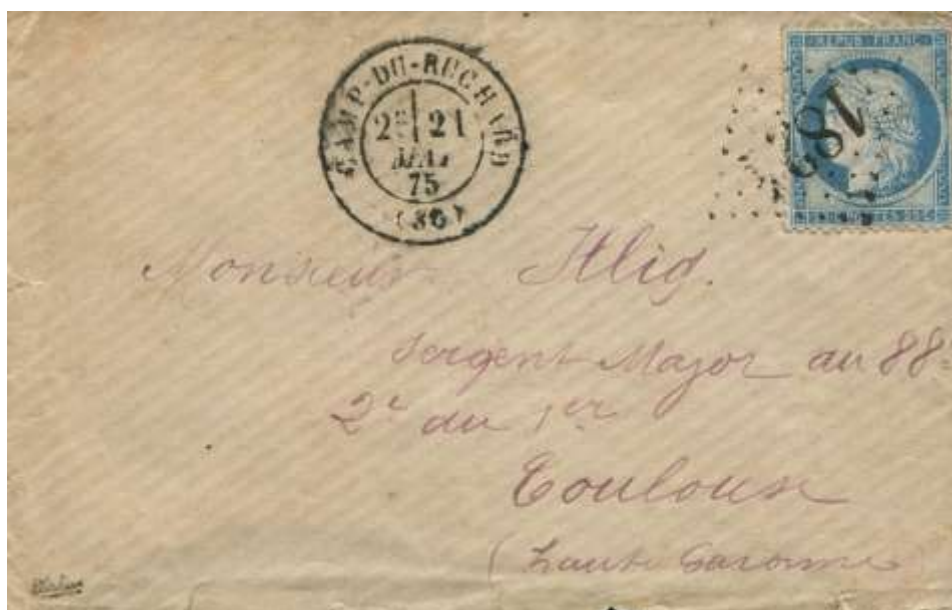 CAMP-DU-RUCHARD
2E 21
75
(36)
REPUB. FRANC.
Monsieur Illig.
Sergent Major au 88
2e du 1er
Toulouse
(haute Garonne)